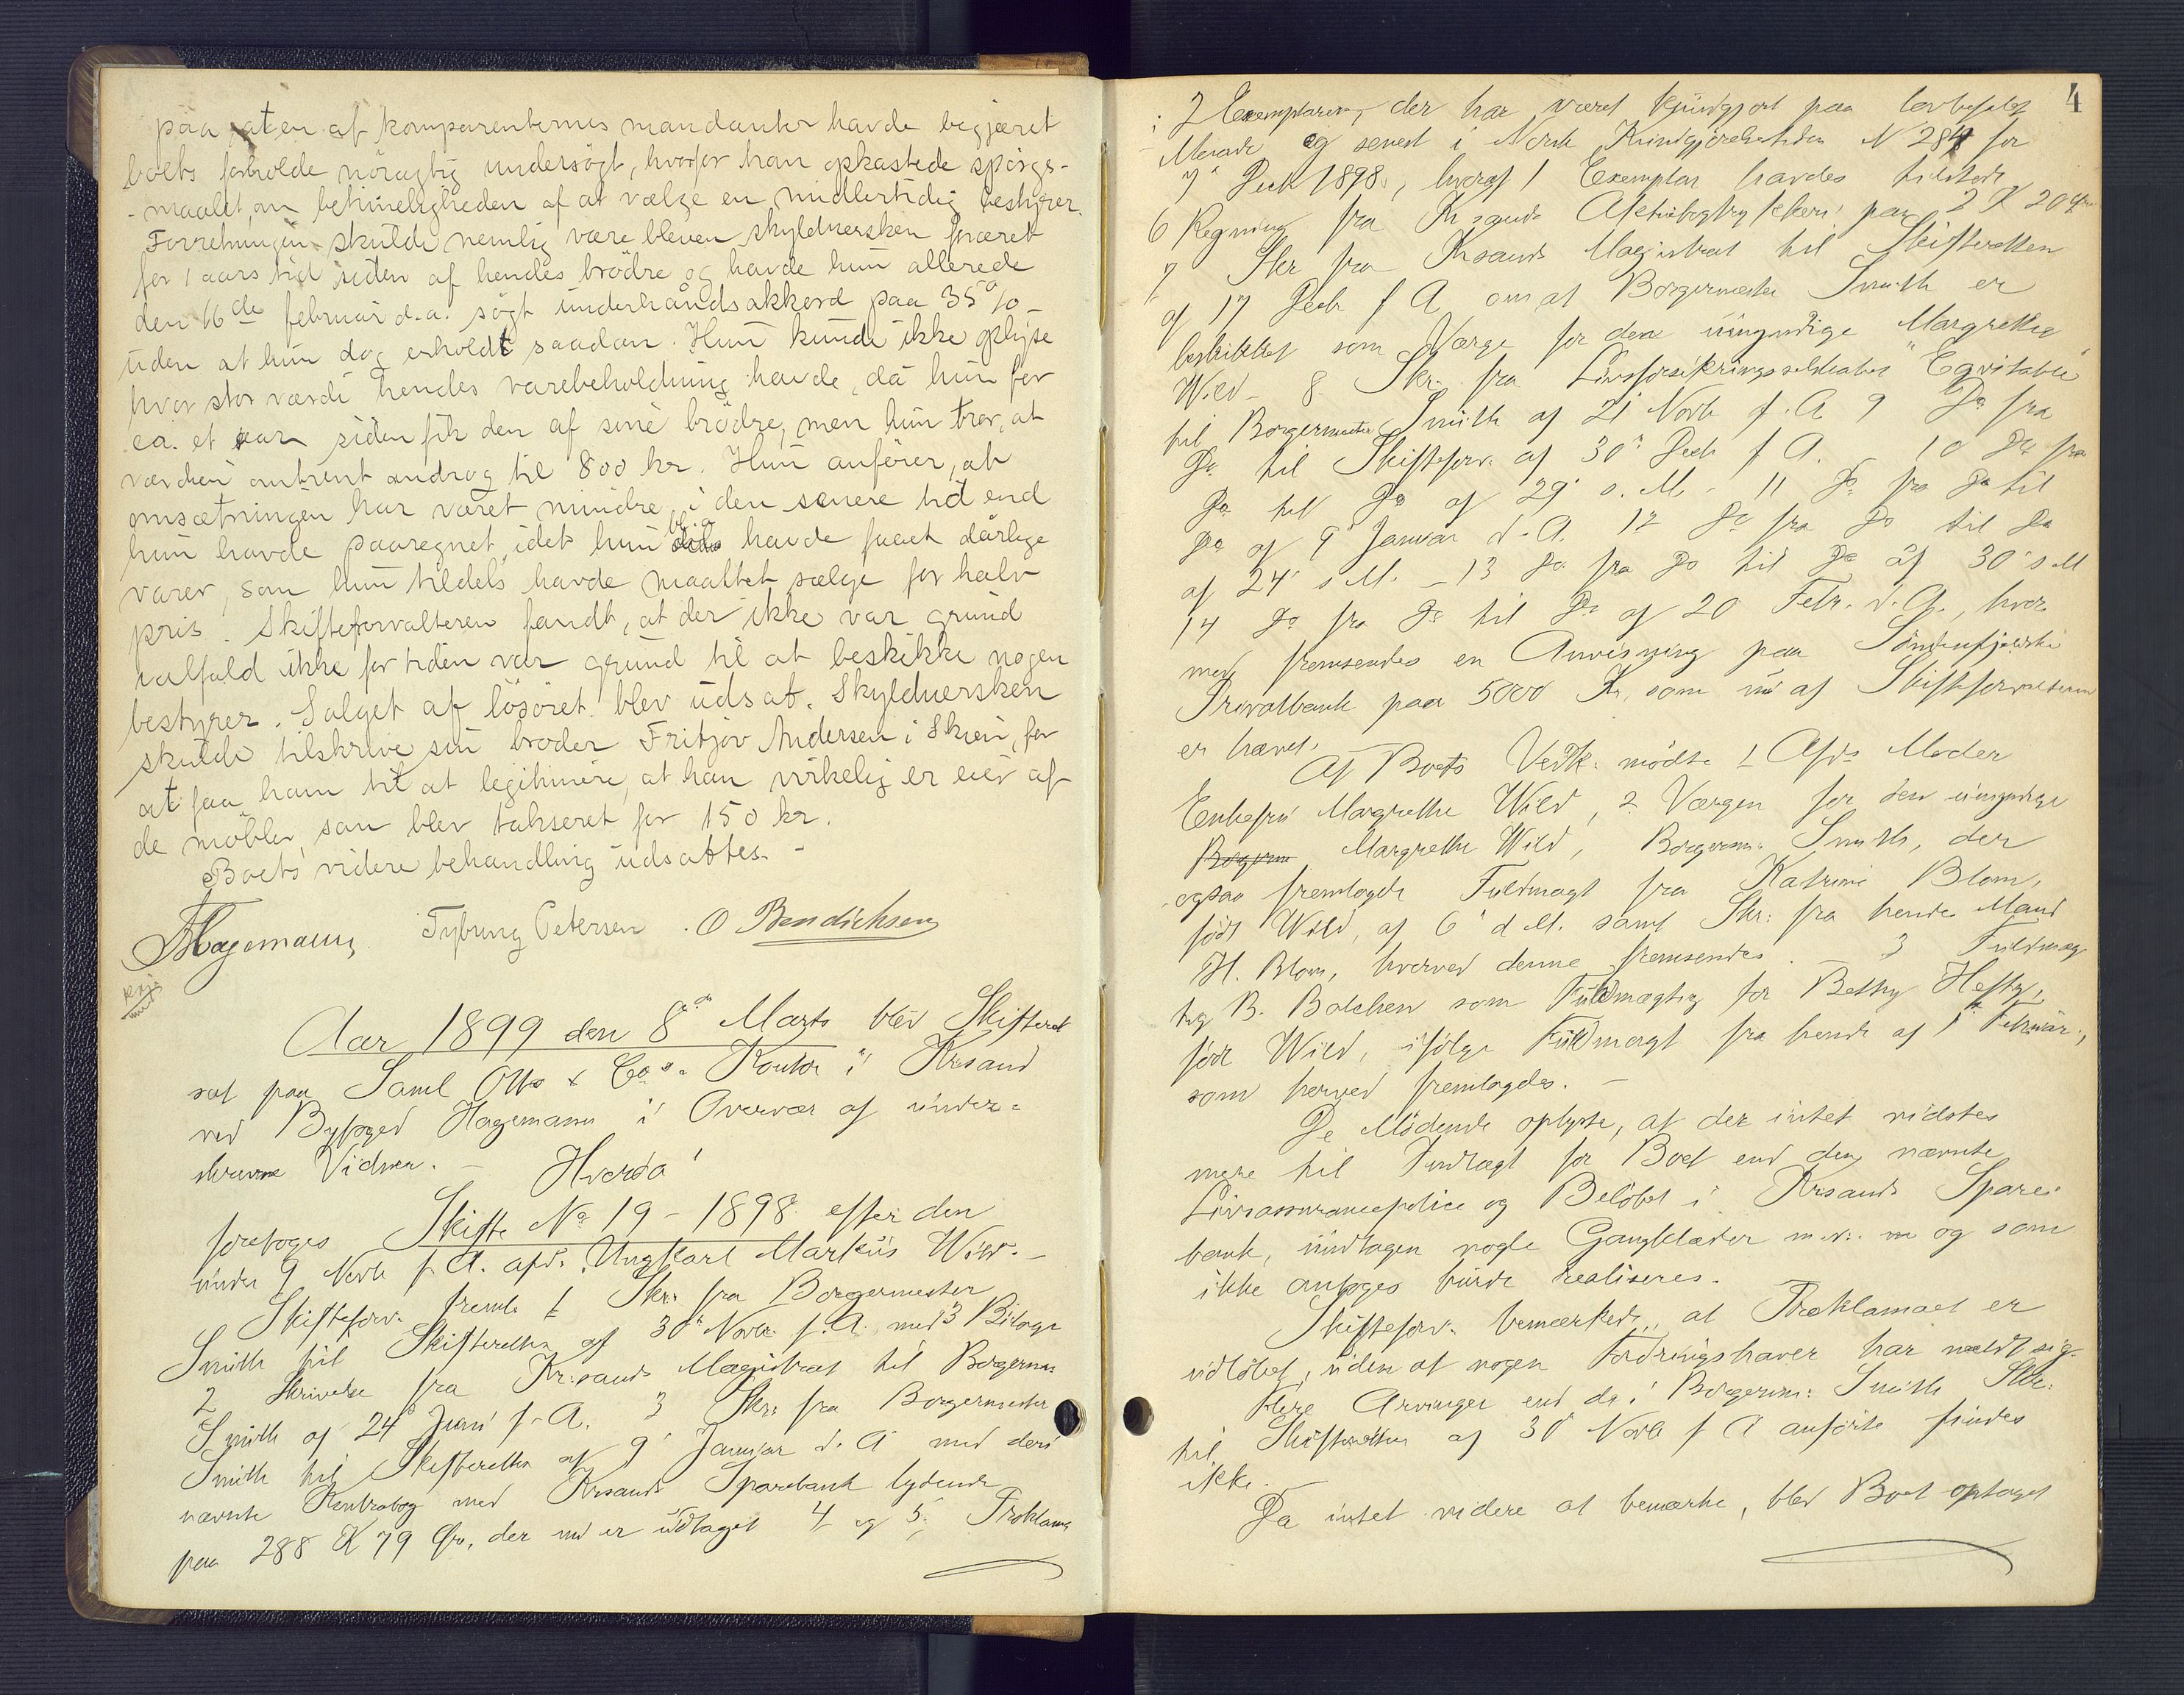 paa at en af komparenternes mandanter havde begjæret
boets forholde nöiagtig undersögt, hvorfor han opkastede spörgs-
maalet om betimeligheden af at vælge en midlertidig bestyrer.
Forretningen skulde nemlig være bleven skyldnersken foræret
for 1 aars tid siden af hendes brödre og havde hun allerede
den 16de februar d.a. sögt underhåndsakkord paa 35 %
uden at hun dog erholdt saadan. Hun kunde ikke oplyse
hvor stor værdi hendes varebeholdning havde, da hun for
ca. et aar siden fik den af sine brödre, men hun tror, at
værdien omtrent androg til 800 kr. Hun anförer, at
omsætningen har været mindre i den senere tid end
hun havde paaregnet, idet hun bl.a. havde faaet dårlige
varer, som hun tildels havde maattet sælge for halv
pris. Skifteforvalteren fandt, at der ikke var grund
ialfald ikke for tiden var grund til at beskikke nogen
bestyrer. Salget af lösöret blev udsat. Skyldnersken
skulde tilskrive sin broder Fritjov Andersen i Skien, for
at faa ham til at legitimere, at han virkelig er eier af
de möbler, som blev takseret for 150 kr.
Boets videre behandling udsattes. -
Hagemann Tybring Petersen. O Bendichsen
Aar 1899 den 8de Marts blev Skifteret
sat paa Saml Otto & Co's Kontor i Krsand
ved Byfoged Hagemann i Overvær af under-
skrevne Vidner. - Hvorda
foretoges Skifte No 19 - 1898 efter den
under 9 Novb f. A. afd. Ungkarl Markus Wild. -
Skifteforv. freml. 1 Skr. fra Borgermester
Smith til Skifteretten af 30 Novbr. f. A. med 3 Bilage
2 Skrivelse fra Kr.sands Magistrat til Borgerm.
Smith af 24 Juni f. A. 3 Skr. fra Borgermester
Smith til Skifteretten af 9 Januar d. A med deri
nævnte Kontrabog med Krsands Sparebank lydende
paa 288 K 79 Øre, der nu er udtaget 4 og 5. Proklama
4
i 2 Exemplarer, der har været kundgjort paa lovbefalet
Maade og senest i Norsk Kundgjørelsestidende N 284 for
7 Decb 1898, hvoraf 1 Exemplar havdes tilstede
6 Regning fra Krsands Aktiebogtrykkeri paa 2 K 20 Øre
7 Skr fra Krsands Magistrat til Skifteretten
af 17 Decb f A om at Borgermester Smith er
beskikket som Værge for den umyndige Margrethe
Wild - 8 Skr. fra Livsforsikringsselskabet "Eqvitable"
til Borgermester Smith af 21 Novb f. A 9 Do fra
Do til Skifteforv. af 30 Decb f A. 10 Do fra
Do til Do af 29 s. M. - 11 Do fra Do til
Do af 9 Januar d. A. 12 Do fra Do til Do
af 24 s M. - 13 Do fra Do til Do af 30 s M
14 Do fra Do til Do af 20 Febr. d. A., hvor
med fremsendes en Anvisning paa Søndenfjeldske
Privatbank paa 5000 Kr, som nu af Skifteforvalteren
er hævet.
Af Boets Vedk. mødte 1 Afds Moder
Enkefru Margrethe Wild, 2 Værgen for den umyndige
Margrethe Wild, Borgerm. Smith, der
ogsaa fremlagde Fuldmagt fra Katrine Blom,
født Wild, af 6 d M. samt Skr. fra hendes Mand
H. Blom, hvorved denne fremsendes. 3 Fuldmæg-
tig B. Balchen som Fuldmægtig for Betty Hefty,
født Wild, ifølge Fuldmagt fra hende af 1 Februar,
som herved fremlagdes. -
De Mødende oplyste, at der intet vidstes
mere til Indtægt for Boet end den nævnte
Livsassurancepolice og Beløbet i Krsands Spare-
bank, undtagen nogle Gangklæder m.v. og som
ikke antoges burde realiseres.
Skifteforv. bemærkede, at Proklamaet er
udløbet, uden at nogen Fordringshaver har meldt sig.
Flere Arvinger end de i Borgerm. Smith Skr.
til Skifteretten af 30 Novb f A anførte findes
ikke. -
Da intet videre at bemærke, blev Boet optaget